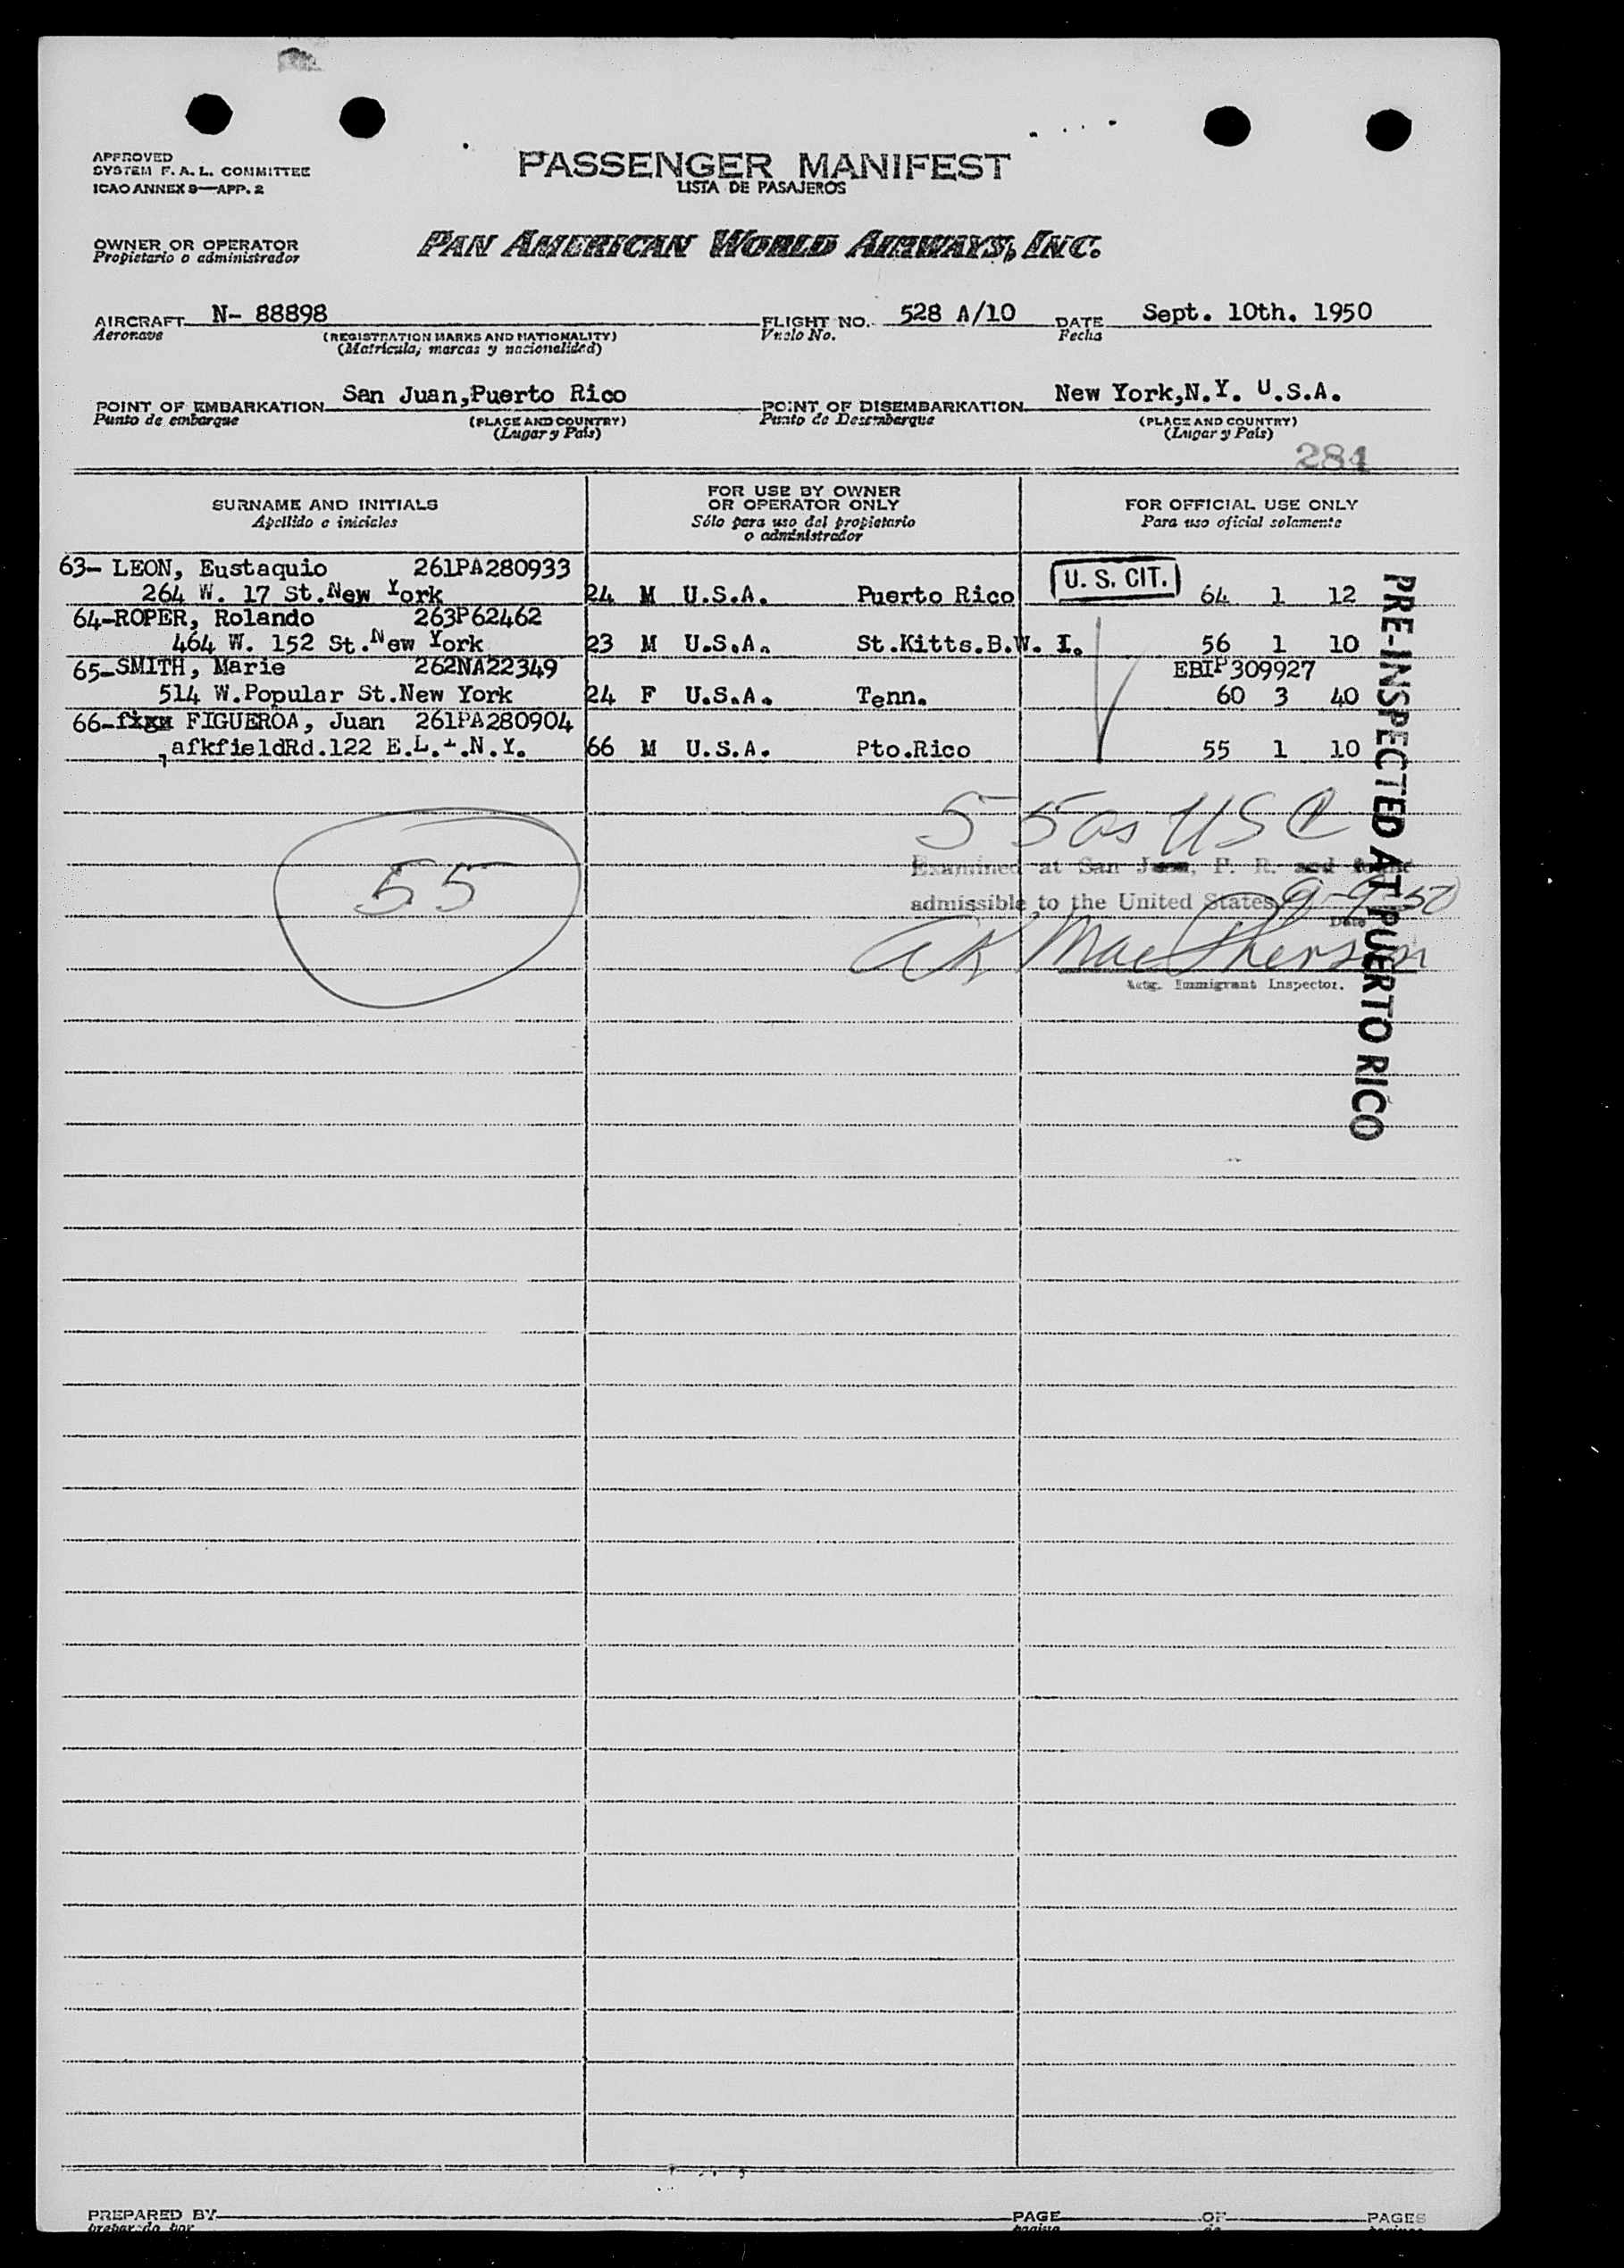 APPROVED
SYSTEM F. A. L. COMMITTEE
ICAO ANNEX 9—APP. 2
PASSENGER MANIFEST
LISTA DE PASAJEROS
OWNER OR OPERATOR
Propietario o administrador
PAN AMERICAN WORLD AIRWAYS, INC.
AIRCRAFT N- 88898 FLIGHT NO. 528 A/10 DATE Sept. 10th. 1950
Aeronave (REGISTRATION MARKS AND NATIONALITY) Vuelo No. Fecha
(Matrícula, marcas y nacionalidad)
POINT OF EMBARKATION San Juan,Puerto Rico POINT OF DISEMBARKATION New York,N.Y. U.S.A.
Punto de embarque (PLACE AND COUNTRY) Punto de Desembarque (PLACE AND COUNTRY)
(Lugar y País) (Lugar y País)
284
SURNAME AND INITIALS FOR USE BY OWNER OR OPERATOR ONLY FOR OFFICIAL USE ONLY
Apellido e iniciales Sólo para uso del propietario o administrador Para uso oficial solamente
63- LEON, Eustaquio 261PA280933
264 W. 17 St.New York 24 M U.S.A. Puerto Rico U. S. CIT. 64 1 12
64-ROPER, Rolando 263P62462
464 W. 152 St.New York 23 M U.S.A. St.Kitts.B.W. I. 56 1 10
65-SMITH, Marie 262NA22349 EBIP309927
514 W.Popular St.New York 24 F U.S.A. Tenn. 60 3 40
66- FIGUEROA, Juan 261PA280904
afkfieldRd.122 E.L.I.N.Y. 66 M U.S.A. Pto.Rico 55 1 10
55 as USC
55
Examined at San Juan, P. R. and found
admissible to the United States 9-9-50
Date
AK MacPherson
Actg. Immigrant Inspector.
PRE-INSPECTED AT PUERTO RICO
PREPARED BY PAGE OF PAGES